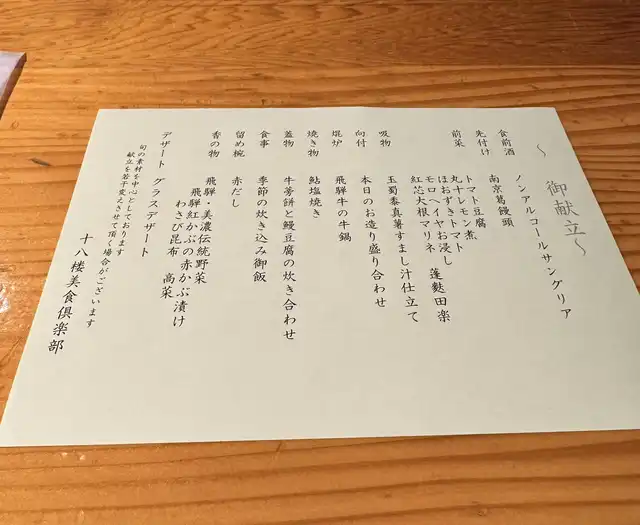 ～御献立～
食前酒 ノンアルコールサングリア
先付け 南京葛饅頭
前菜 トマト豆腐
丸十レモン煮
ほおずきトマト
モロヘイヤお浸し 蓬麩田楽
紅芯大根マリネ
吸物 玉蜀黍真薯すまし汁仕立て
向付 本日のお造り盛り合わせ
焜炉 飛騨牛の牛鍋
焼き物 鮎塩焼き
蓋物 牛蒡餅と鰻豆腐の炊き合わせ
食事 季節の炊き込み御飯
留め椀 赤だし
香の物 飛騨・美濃伝統野菜
飛騨紅かぶの赤かぶ漬け
わさび昆布 高菜
デザート グラスデザート
旬の素材を中心としております
献立を若干変えさせて頂く場合がございます
十八楼美食倶楽部